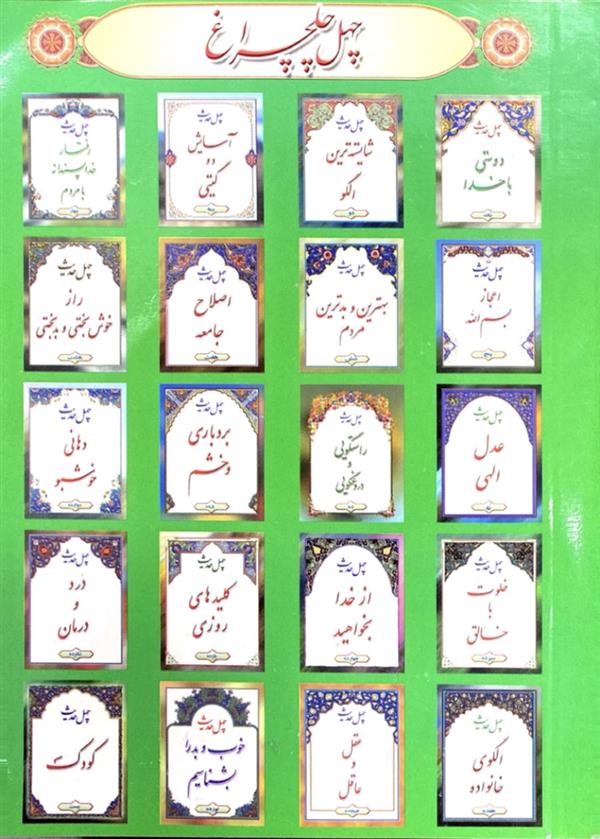 چهل چلچراغ
چهل حدیث
دوستی
با خدا
یک
چهل حدیث
شایسته ترین
الگو
دو
چهل حدیث
آسایش
دو
گیتی
سه
چهل حدیث
رفتار
خداپسندانه
با مردم
چهار
چهل حدیث
اعجاز
بسم الله
پنج
چهل حدیث
بهترین و بدترین
مردم
شش
چهل حدیث
اصلاح
جامعه
هفت
چهل حدیث
راز
خوش بختی و بدبختی
هشت
چهل حدیث
عدل
الهی
نه
چهل حدیث
راستگویی
و
دروغگویی
ده
چهل حدیث
بردباری
و خشم
یازده
چهل حدیث
دهانی
خوشبو
دوازده
چهل حدیث
خلوت
با
خالق
سیزده
چهل حدیث
از خدا
بخواهید
چهارده
چهل حدیث
کلیدهای
روزی
پانزده
چهل حدیث
درد
و
درمان
شانزده
چهل حدیث
الگوی
خانواده
هفده
چهل حدیث
عقل
و
عاقل
هجده
چهل حدیث
خوب و بد را
بشناسیم
نوزده
چهل حدیث
کودک
بیست